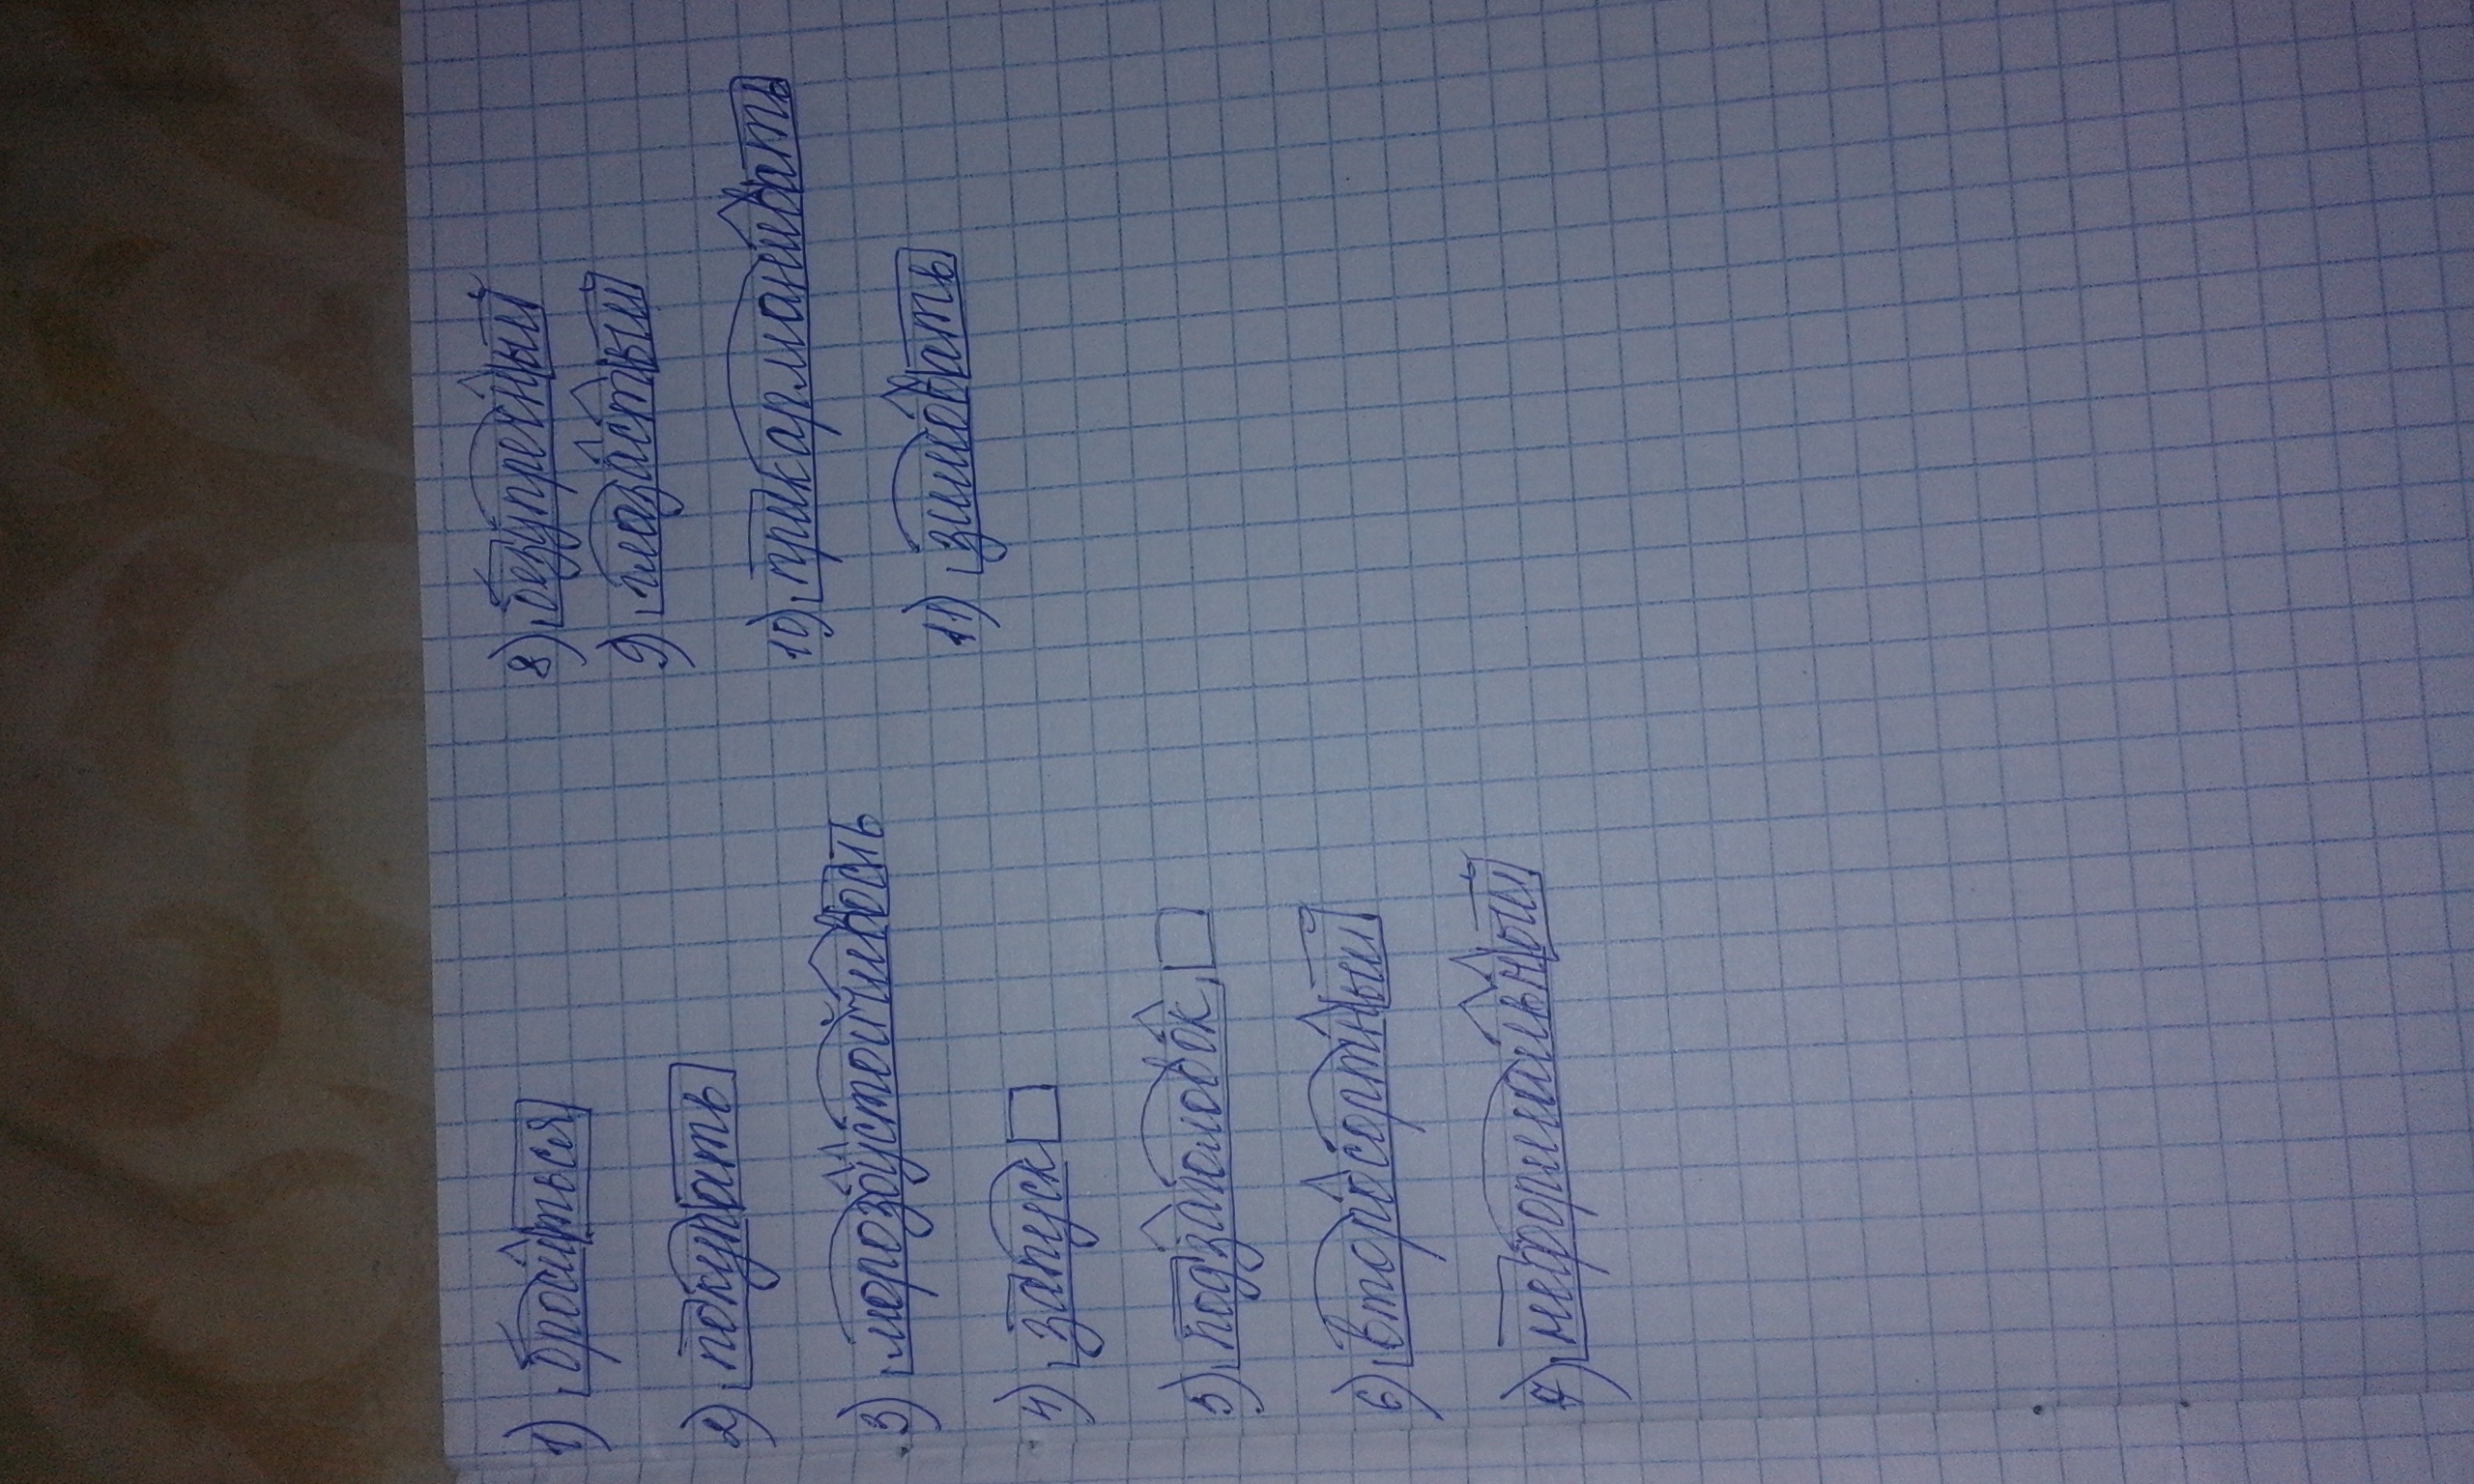 1) броситься
2) покупать
3) морозоустойчивость
4) запуск
5) подзаголовок
6) второсортный
7) неформальный
8) безупречный
9) глазастый
10) прикарманивать
11) зимовать